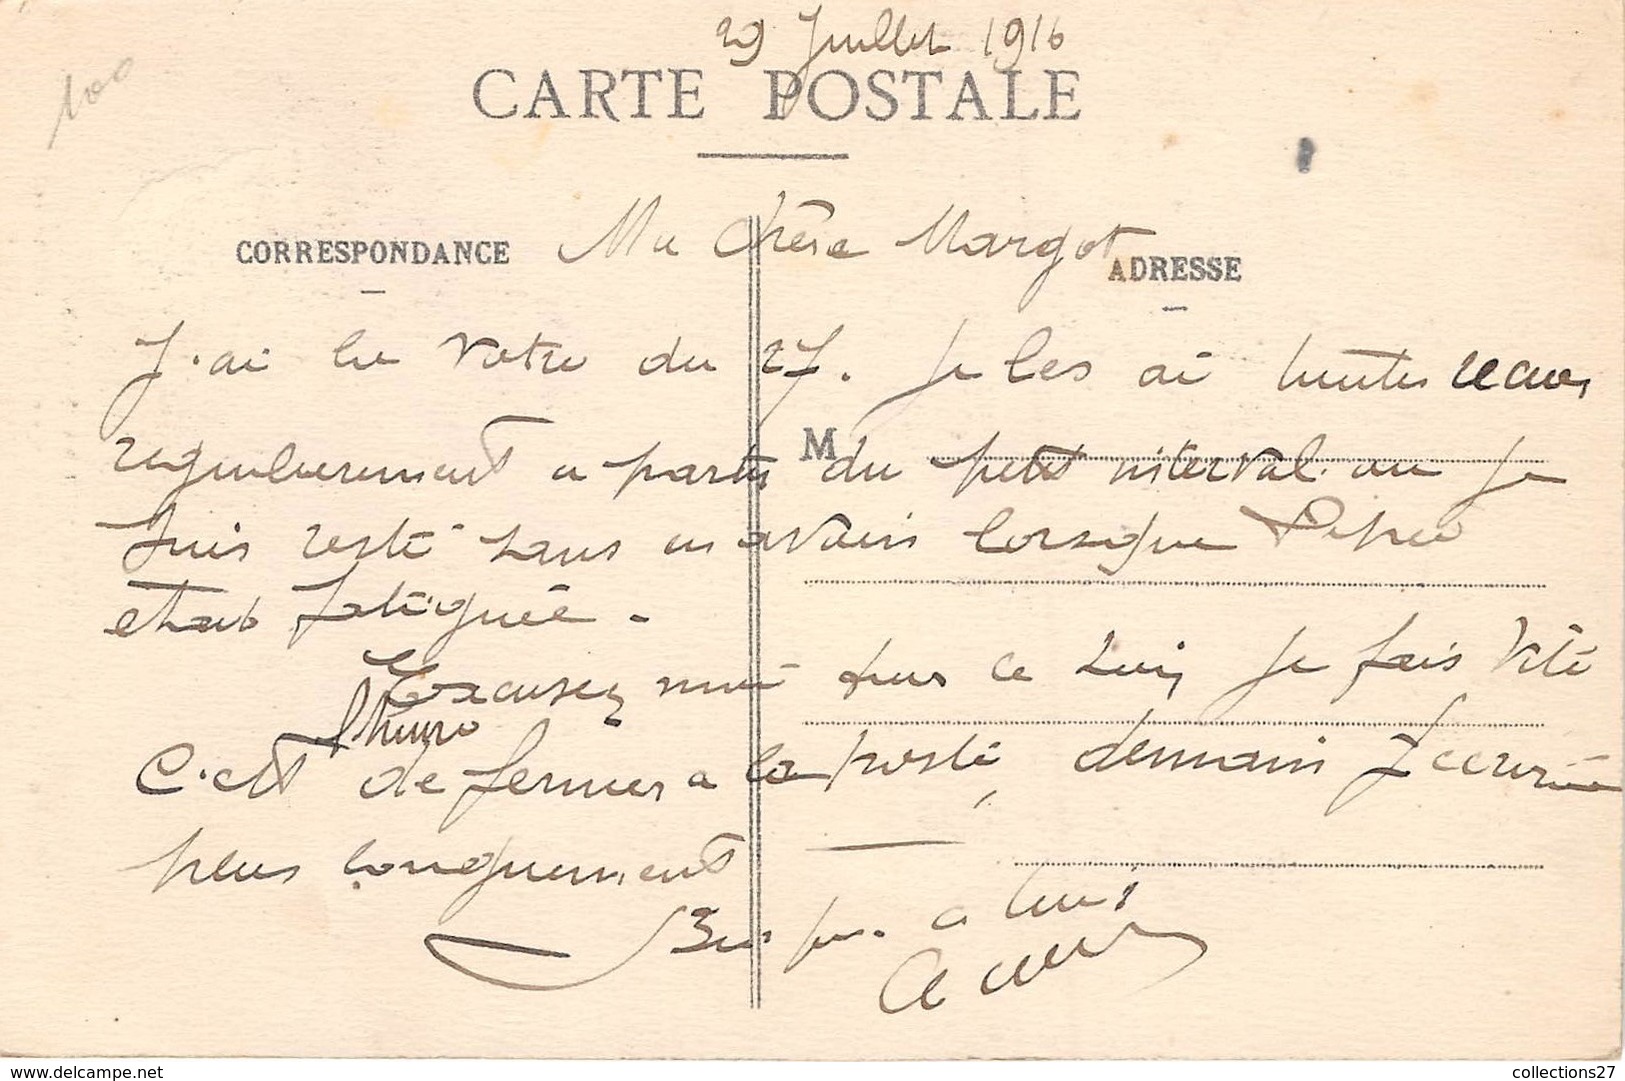 100
29 Juillet 1916
CARTE POSTALE
CORRESPONDANCE
Ma Chère Margot
ADRESSE
J'ai lu votre du 27. Je les ai toutes recues
M
regulierement a partir du petit interval. ou je
suis resté sans en avoir lorsque Pepée
etait fatiguée.
Excusez moi pour ce soir, je fais vite
l'heure
C'est de fermer a la poste, demain J ecrirai
plus longuement
Bien a tous
collections27